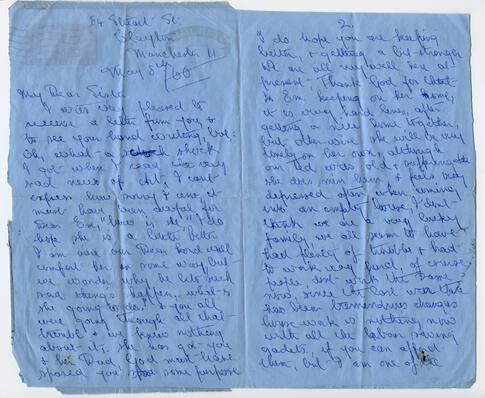 84 Stuart St.
Clayton
Manchester 11
May 8th/60
My Dear Linda
I was very pleased to
receive a letter from you, & to
to see your hand writing, but
Oh, what a shock
I got when I read very
sad news of Art, I cant
express how sorry I am, it
must have been awful for
Dear Em, how is she, I do
hope she is a little better
I am sure our Dear Lord will
comfort her in some way but
we wonder why he lets such
sad things happen, what is
she going to do. & you all
were going through all that
trouble & we knew nothing
about it, she has got you
& Dear God must have
spared you for some purpose
2.
I do hope you are keeping
better, & getting a bit stronger
We are all very well here at
present Thank God for that
Is Em keeping on her home,
it is very hard lines, after
getting a nice home together,
but otherwise she will be very
lonely on her own, although
our Ted was old & suffering
she does miss him, & feels very
depressed often when coming
into an empty house. I dont
think we are a very lucky
family, we all seem to have
had plenty of trouble & had
to work very hard, of course
people dont work the same
now, since the last war there
has been tremendous changes
house work is nothing now
with all the labour saving
gadets, if you can afford
them, but I am one of the